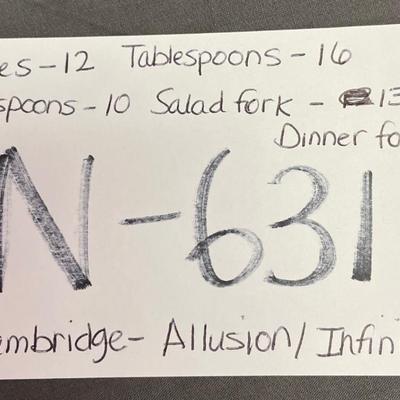 es-12 Tablespoons-16
spoons-10 Salad fork - 13
Dinner fo
N-631
mbridge- Allusion/Infin